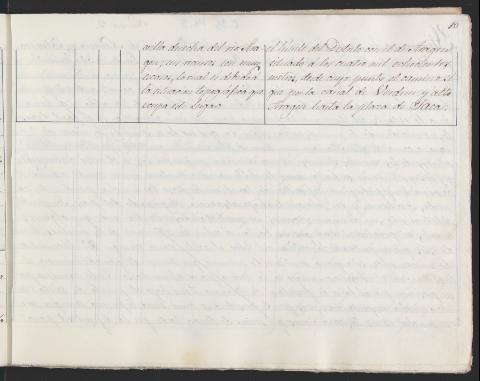 orilla derecha del rio Ara-
gon; sus ramos son muy
escasos, lo cual es debido á
la situacion topográfica que
ocupa este Lugar.
el límite del Distrito con el de Aragon
situado á los cuatro mil ochocientos
metros, desde cuyo punto el camino si-
que por la canal de Verdun y alto
Aragon hasta la plaza de Jaca.